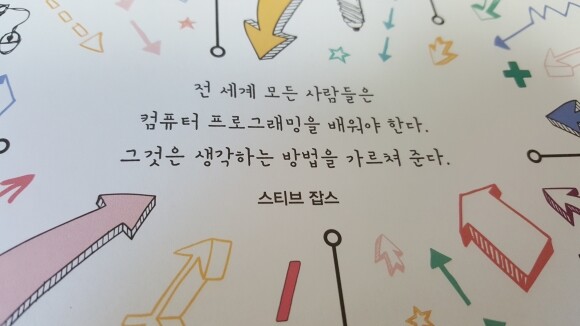 전 세계 모든 사람들은
컴퓨터 프로그래밍을 배워야 한다.
그것은 생각하는 방법을 가르쳐 준다.
스티브 잡스